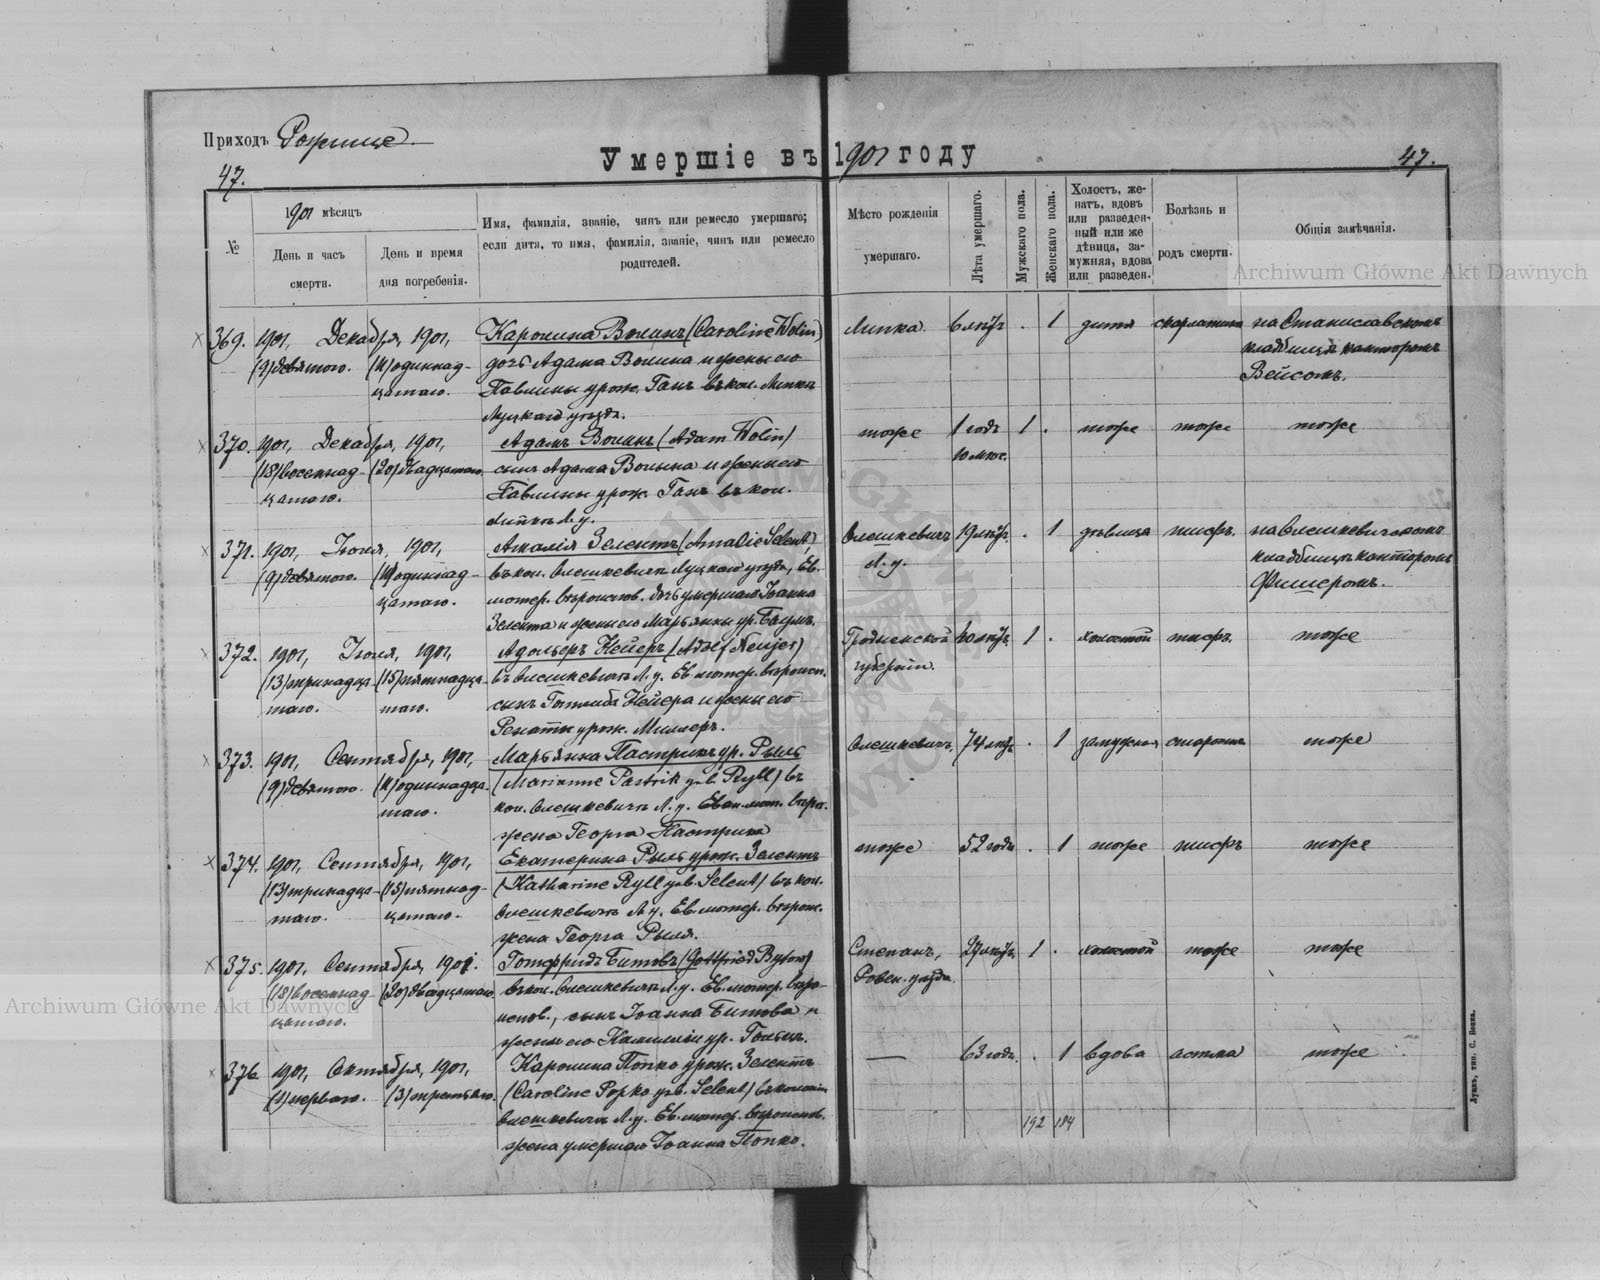 Приходъ Рожище.
Умершіе въ 1901 году
47.
47.
№
1901 мѣсяцъ
День и часъ
смерти.
День и время
дня погребенія.
Имя, фамилія, званіе, чинъ или ремесло умершаго;
если дитя, то имя, фамилія, званіе, чинъ или ремесло
родителей.
Мѣсто рожденія
умершаго.
Лѣта умершаго.
Мужскаго пола.
Женскаго пола.
Холостъ, же-
натъ, вдовъ
или разведен-
ный или же
дѣвица, за-
мужняя, вдова
или разведен.
Болѣзнь и
родъ смерти.
Общія замѣчанія.
369. 1901, Декабря, 1901, Каролина Волинъ (Caroline Wolin) Липка. 6 лѣтъ . 1 дитя скарлатина на Станиславскомъ
(9) девятого. (11) одиннад- дочь Адама Волина и жены его кладбищѣ канторомъ
цатаго. Павлины урож. Ганъ въ кол. Липкѣ Вейсомъ.
Луцкаго уѣзда.
370. 1901, Декабря, 1901, Адамъ Волинъ (Adam Wolin) тоже 1 годъ 1 . тоже тоже тоже
(18) восемнад- (20) двадцатаго. сынъ Адама Волина и жены его 10 мѣс.
цатаго. Павлины урож. Ганъ въ кол.
Липкѣ Л. у.
371. 1901, Іюля, 1901, Амалія Зелентъ (Amalie Selent), Олешкевичъ 19 лѣтъ. . 1 дѣвица тифъ. на Олешкевичскомъ
(9) девятого. (11) одиннад- въ кол. Олешкевичъ Луцкаго уѣзда, Ев. Л. у. кладбищѣ канторомъ
цатаго. лютер. вѣроисповѣд. дочь умершаго Іоанна Фишеромъ.
Зелента и жены его Марьянны ур. Баумъ.
372. 1901, Іюля, 1901, Адольфъ Нейеръ (Adolf Neujer) Гродненской 20 лѣтъ 1 . холостой тифъ. тоже
(13) тринадца- (15) пятнадца- въ Олешкевичъ Л. у. Ев. лютер. вѣроисп. губерніи.
таго. таго. сынъ Готлиба Нейера и жены его
Ренаты урож. Миллеръ.
373. 1901, Сентября, 1901, Марьянна Пастрикъ ур. Рыль Олешкевичъ, 74 лѣтъ . 1 замужняя старость тоже
(9) девятого. (11) одиннадца- (Marianne Pastrik geb. Ryll) въ
таго. кол. Олешкевичъ Л. у. Еван. лют. вѣрои.
жена Георга Пастрика
374. 1901, Сентября, 1901, Екатерина Рыль урож. Зелентъ тоже 52 года . 1 тоже тифъ тоже
(13) тринадца- (15) пятнад- (Katharine Ryll geb. Selent) въ кол.
таго. цатаго. Олешкевичъ Л. у. Ев. лютер. вѣроис.
жена Георга Рыля.
375. 1901, Сентября, 1901. Готфридъ Битовъ (Gottfried Bytow) Степанъ, 27 лѣтъ 1 . холостой тоже тоже
(18) восемнад- (20) двадцатаго. въ кол. Олешкевичъ Л. у. Ев. лютер. вѣро- Ровен. уѣзда
цатаго. испов., сынъ Іоанна Битова и
жены его Камиліи ур. Гольцъ.
376 1901, Октября, 1901, Каролина Попко урож. Зелентъ — 63 года. . 1 вдова астма тоже
(1) перваго. (3) третьяго. (Caroline Popko geb. Selent) въ колоніи
Олешкевичъ Л. у. Ев. лютер. вѣроиспов. 192 184
жена умершаго Іоанна Попко.
Луцкъ, тип. С. Бокка.
Archiwum Główne Akt Dawnych
Archiwum Główne Akt Dawnych